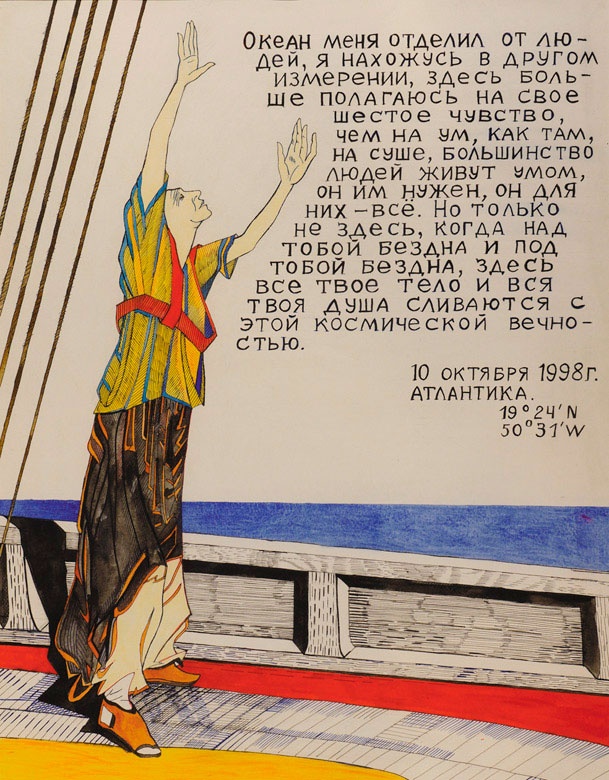 Океан меня отделил от лю-
дей, я нахожусь в другом
измерении, здесь боль-
ше полагаюсь на свое
шестое чувство,
чем на ум, как там,
на суше, большинство
людей живут умом,
он им нужен, он для
них – всё. Но только
не здесь, когда над
тобой бездна и под
тобой бездна, здесь
все твое тело и вся
твоя душа сливаются с
этой космической вечно-
стью.
10 октября 1998г.
Атлантика.
19°24'N
50°31'W